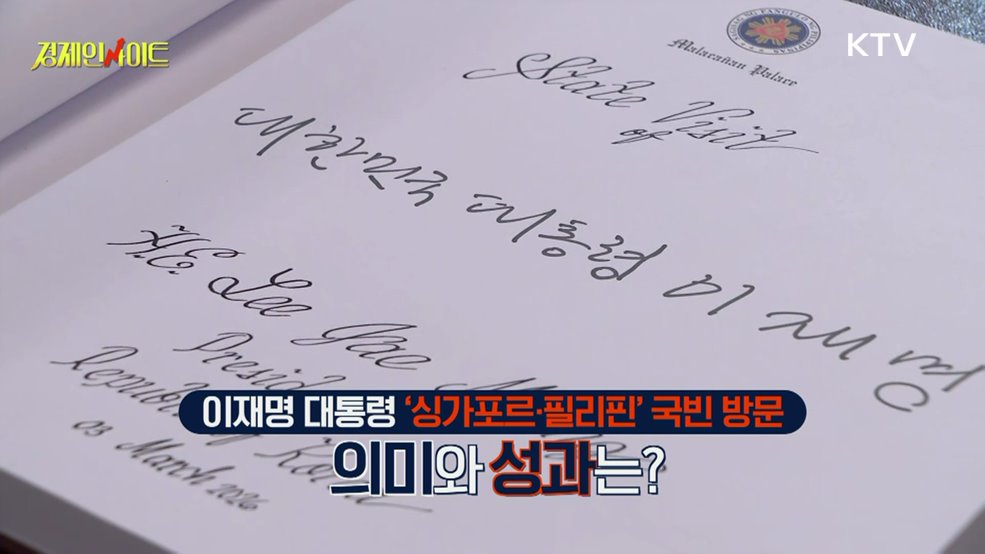 경제인사이트
KTV
Malacañan Palace
State Visit
of
대한민국 대통령 이재명
H.E. Lee Jae
Presid
Republic of Korea
03 March 2026
이재명 대통령 ‘싱가포르·필리핀’ 국빈 방문
의미와 성과는?